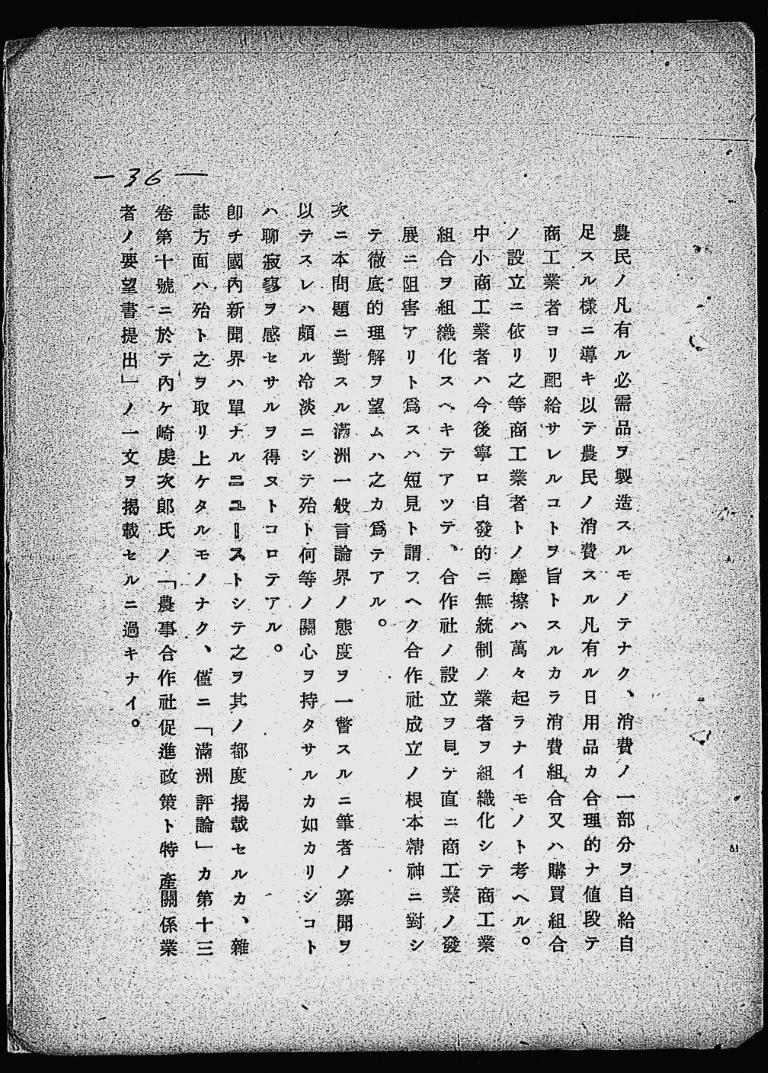 —36—
農民ノ凡有ル必需品ヲ製造スルモノテナク、消費ノ一部分ヲ自給自
足スル樣ニ導キ以テ農民ノ消費スル凡有ル日用品カ合理的ナ値段テ
商工業者ヨリ配給サレルコトヲ旨トスルカラ消費組合又ハ購買組合
ノ設立ニ依リ之等商工業者トノ摩擦ハ萬々起ラナイモノト考ヘル。
中小商工業者ハ今後寧ロ自發的ニ無統制ノ業者ヲ組織化シテ商工業
組合ヲ組織化スヘキテアツテ、合作社ノ設立ヲ見テ直ニ商工業ノ發
展ニ阻害アリト爲スハ短見ト謂フヘク合作社成立ノ根本精神ニ對シ
テ徹底的理解ヲ望ムハ之カ爲テアル。
次ニ本問題ニ對スル滿洲一般言論界ノ態度ヲ一瞥スルニ筆者ノ寡聞ヲ
以テスレハ頗ル冷淡ニシテ殆ト何等ノ關心ヲ持タサルカ如カリシコト
ハ聊寂寥ヲ感セサルヲ得ヌトコロテアル。
卽チ國內新聞界ハ單ナルニユーストシテ之ヲ其ノ都度揭載セルカ、雜
誌方面ハ殆ト之ヲ取リ上ケタルモノナク、僅ニ「滿洲評論」カ第十三
卷第十號ニ於テ內ケ崎虔次郎氏ノ「農事合作社促進政策ト特產關係業
者ノ要望書提出」ノ一文ヲ揭載セルニ過キナイ。